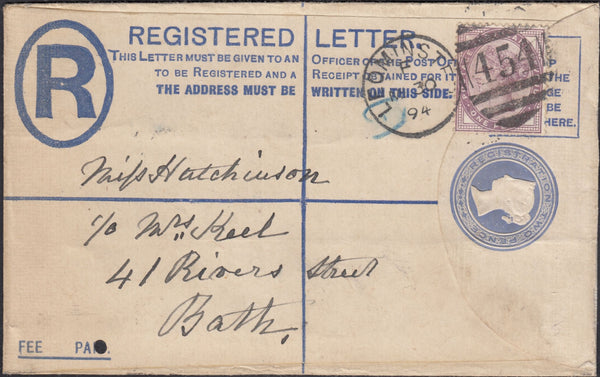 R
REGISTERED LETTER
THIS LETTER MUST BE GIVEN TO AN OFFICER OF THE POST OF
TO BE REGISTERED AND A RECEIPT OBTAINED FOR IT
THE ADDRESS MUST BE WRITTEN ON THIS SIDE.
P
THE
GE
BE
HERE.
LEOMINST
30
94
454
REGISTRATION TWO PENCE
Miss Hatchinson
c/o Mrs Keel
41 Rivers Street
Bath.
FEE PAID.